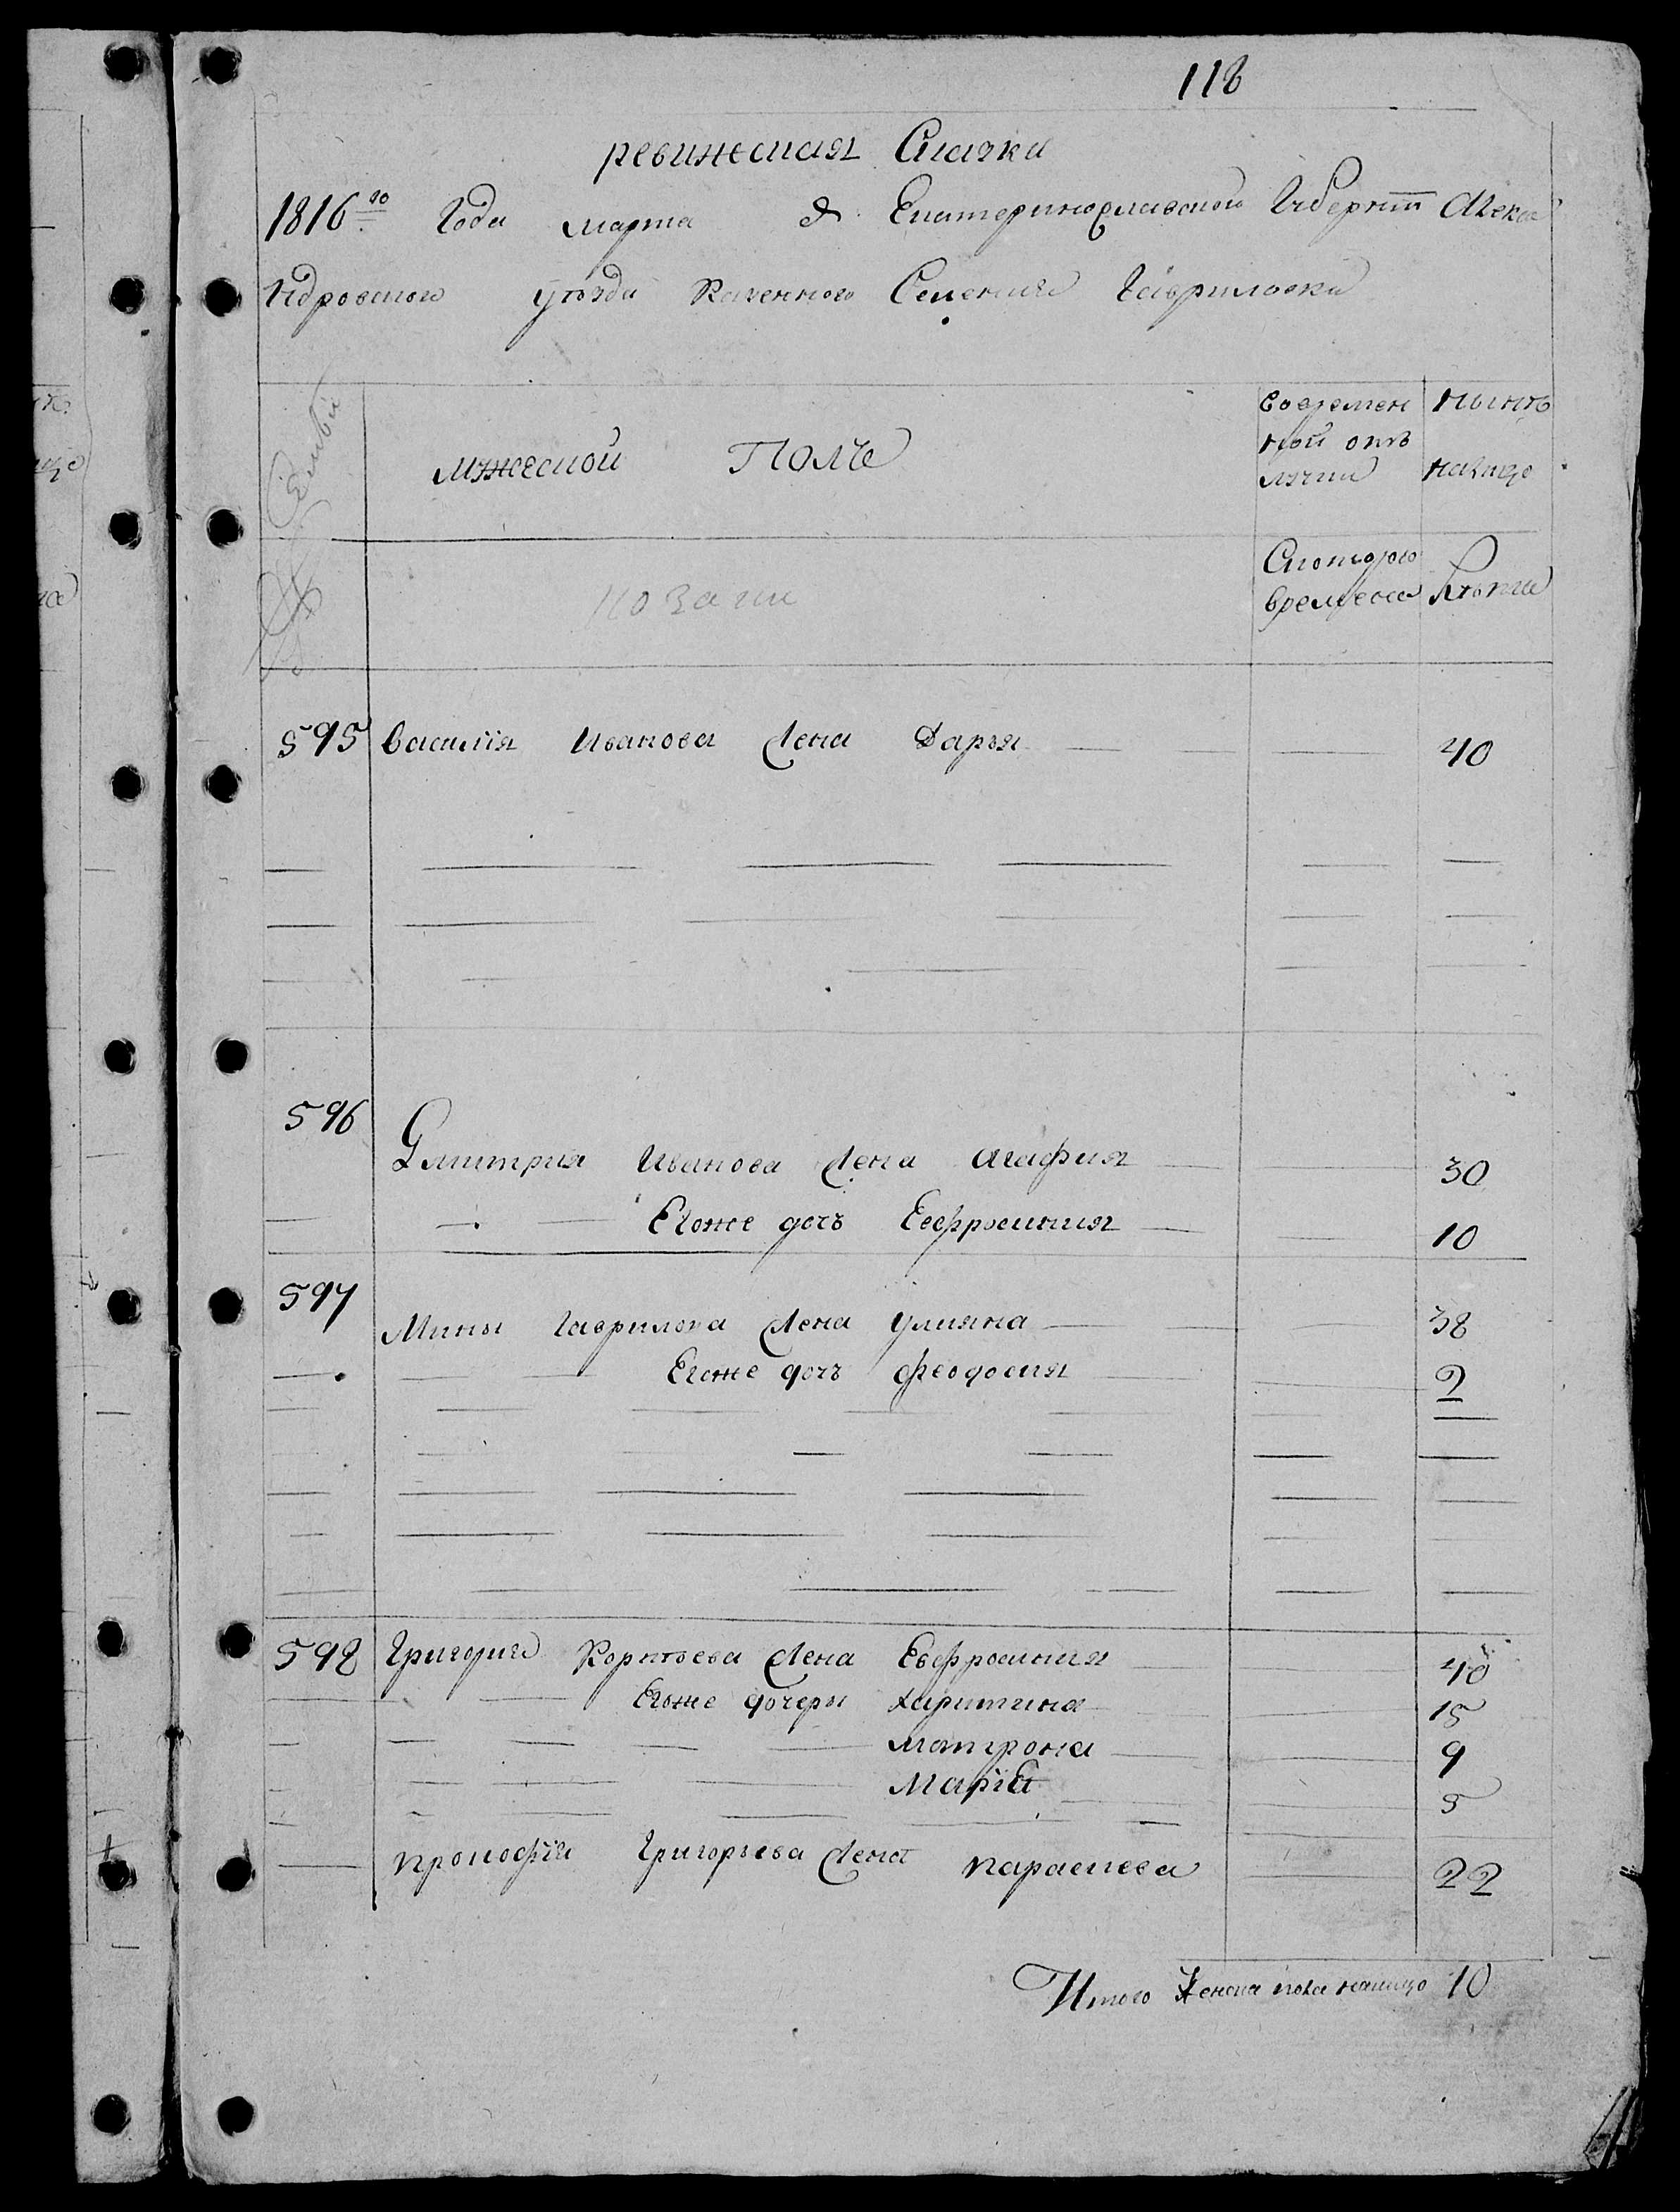 118
ревижская Сказка
1816го Года марта Д Екатеринославской Губернии Алекса
ндровского уѣзда Казенного Селения Гавриловки
Семьи
мужеской Полъ
Вовремен
ной отъ
лучки
нынѣ
налицо
козаки
Скоторого
времени
Лѣта
595 Василія Иванова Жена Дарья 40
596
Дмитрия Иванова Жена Агафия 30
Егоже дочь Ефросиния 10
597
Мины Гаврилова Жена Улияна 38
Егоже дочь Феодосия 2
598 Григория Корнѣева Жена Евфросиния 40
Егоже дочери Харитина 15
Матрона 9
Маріа 5
Прокофія Григорьева Жена Параскева 22
Итого Женска пола налицо 10